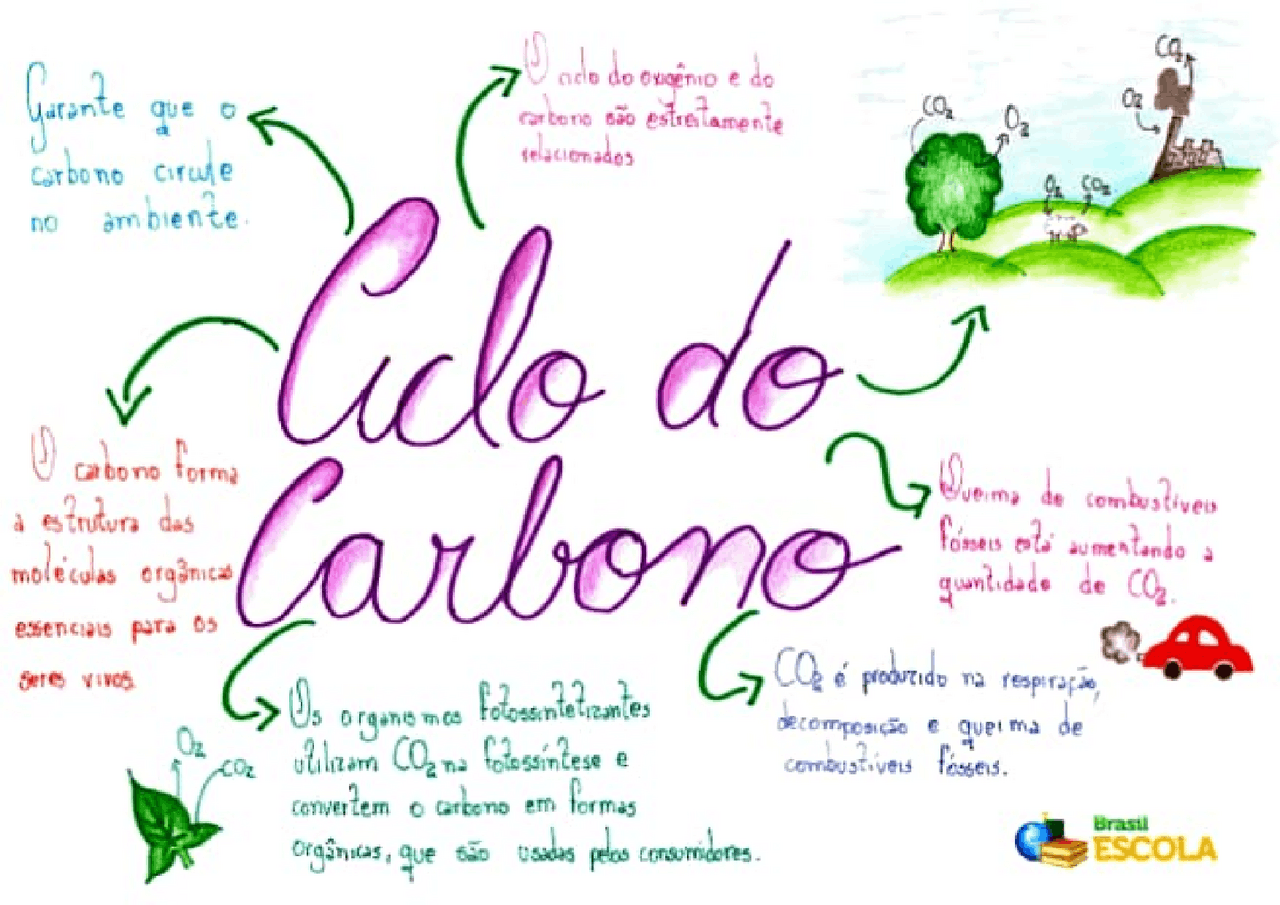 Ciclo do
Carbono
Garante que o
carbono circule
no ambiente.
O ciclo do oxigênio e do
carbono são estreitamente
relacionados
CO₂
O₂
O₂
CO₂
O₂
CO₂
O carbono forma
a estrutura das
moléculas orgânicas
essenciais para os
seres vivos.
Queima de combustíveis
fósseis está aumentando a
quantidade de CO₂.
CO₂ é produzido na respiração,
decomposição e queima de
combustíveis fósseis.
Os organismos fotossintetizantes
utilizam CO₂ na fotossíntese e
convertem o carbono em formas
orgânicas, que são usadas pelos consumidores.
O₂
CO₂
Brasil
ESCOLA